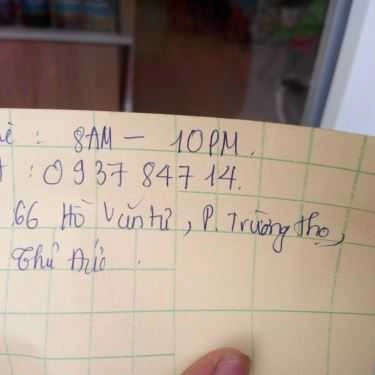 : 8AM – 10PM.
: 0937 84714.
66 Hồ Văn Tư, P. Trường Thọ,
Thủ Đức.